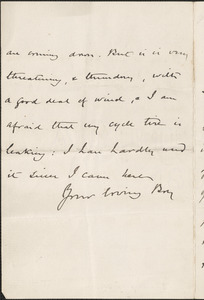 are coming down. But it is very
threatening, & thundery, with
a good deal of wind, & I am
afraid that my cycle tire is
leaking: I have hardly used
it since I came here.
Your loving Boy